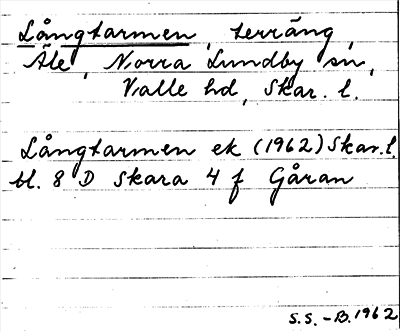 Långtarmen, terräng,
Äle, Norra Lundby sn,
Valle hd, Skar. l.
Långtarmen ek (1962) Skar. l.
bl. 8 D Skara 4 f Gåran
S.S. - B. 1962